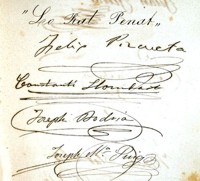 "Lo Rat Penat"
Felix Pizcueta
Constantí Llombart
Joseph Bodria
Joseph Mª Puig